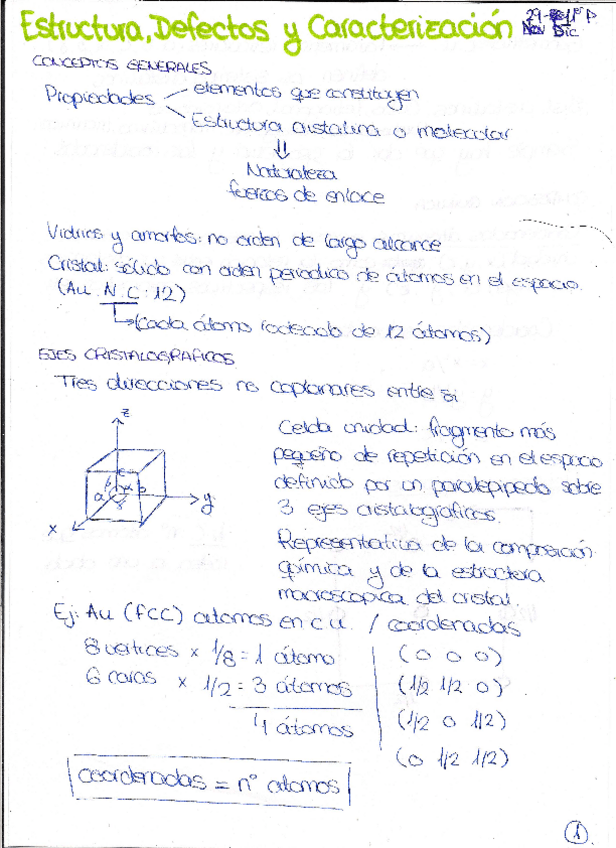 Estructura, Defectos y Caracterización
29- P
Nov Dic
CONCEPTOS GENERALES
Propiedades
elementos que constituyen
Estructura cristalina o molecular
Naturaleza
fuerzas de enlace
Vidrios y amorfos: no orden de largo alcance
Cristal: sólido con orden periodico de átomos en el espacio.
(Au N.C: 12)
(cada átomo rodeado de 12 átomos)
EJES CRISTALOGRAFICOS
Tres direcciones no coplanares entre si
z
y
x
Celda unidad: fragmento más
pequeño de repetición en el espacio
definido por un paralepipedo sobre
3 ejes cristalograficos.
Representativa de la composición
química y de la estructura
macroscopica del cristal.
Ej: Au (FCC) atomos en c.u. / coordenadas
8 vertices x 1/8 = 1 átomo
(0 0 0)
6 caras x 1/2 = 3 átomos
(1/2 1/2 0)
4 átomos
(1/2 0 1/2)
(0 1/2 1/2)
coordenadas = nº atomos
1